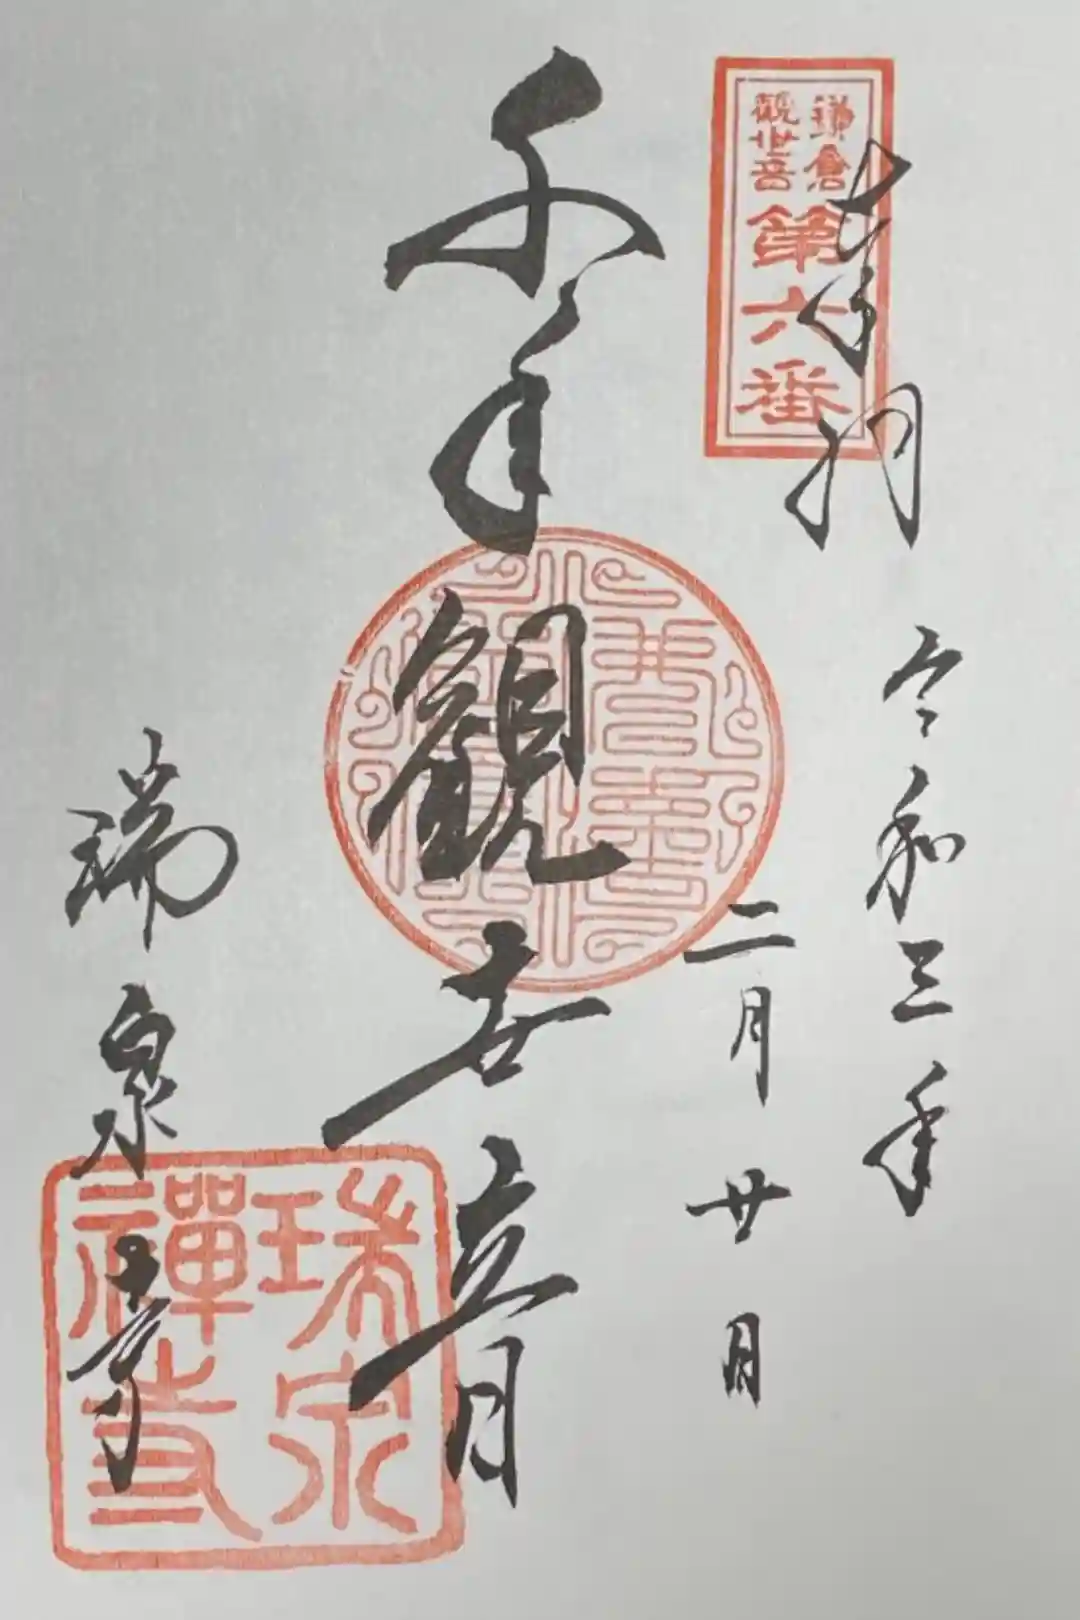 奉拝
令和三年
二月廿日
鎌倉
観世音
第六番
千手観世音
瑞泉寺
瑞泉
禅寺